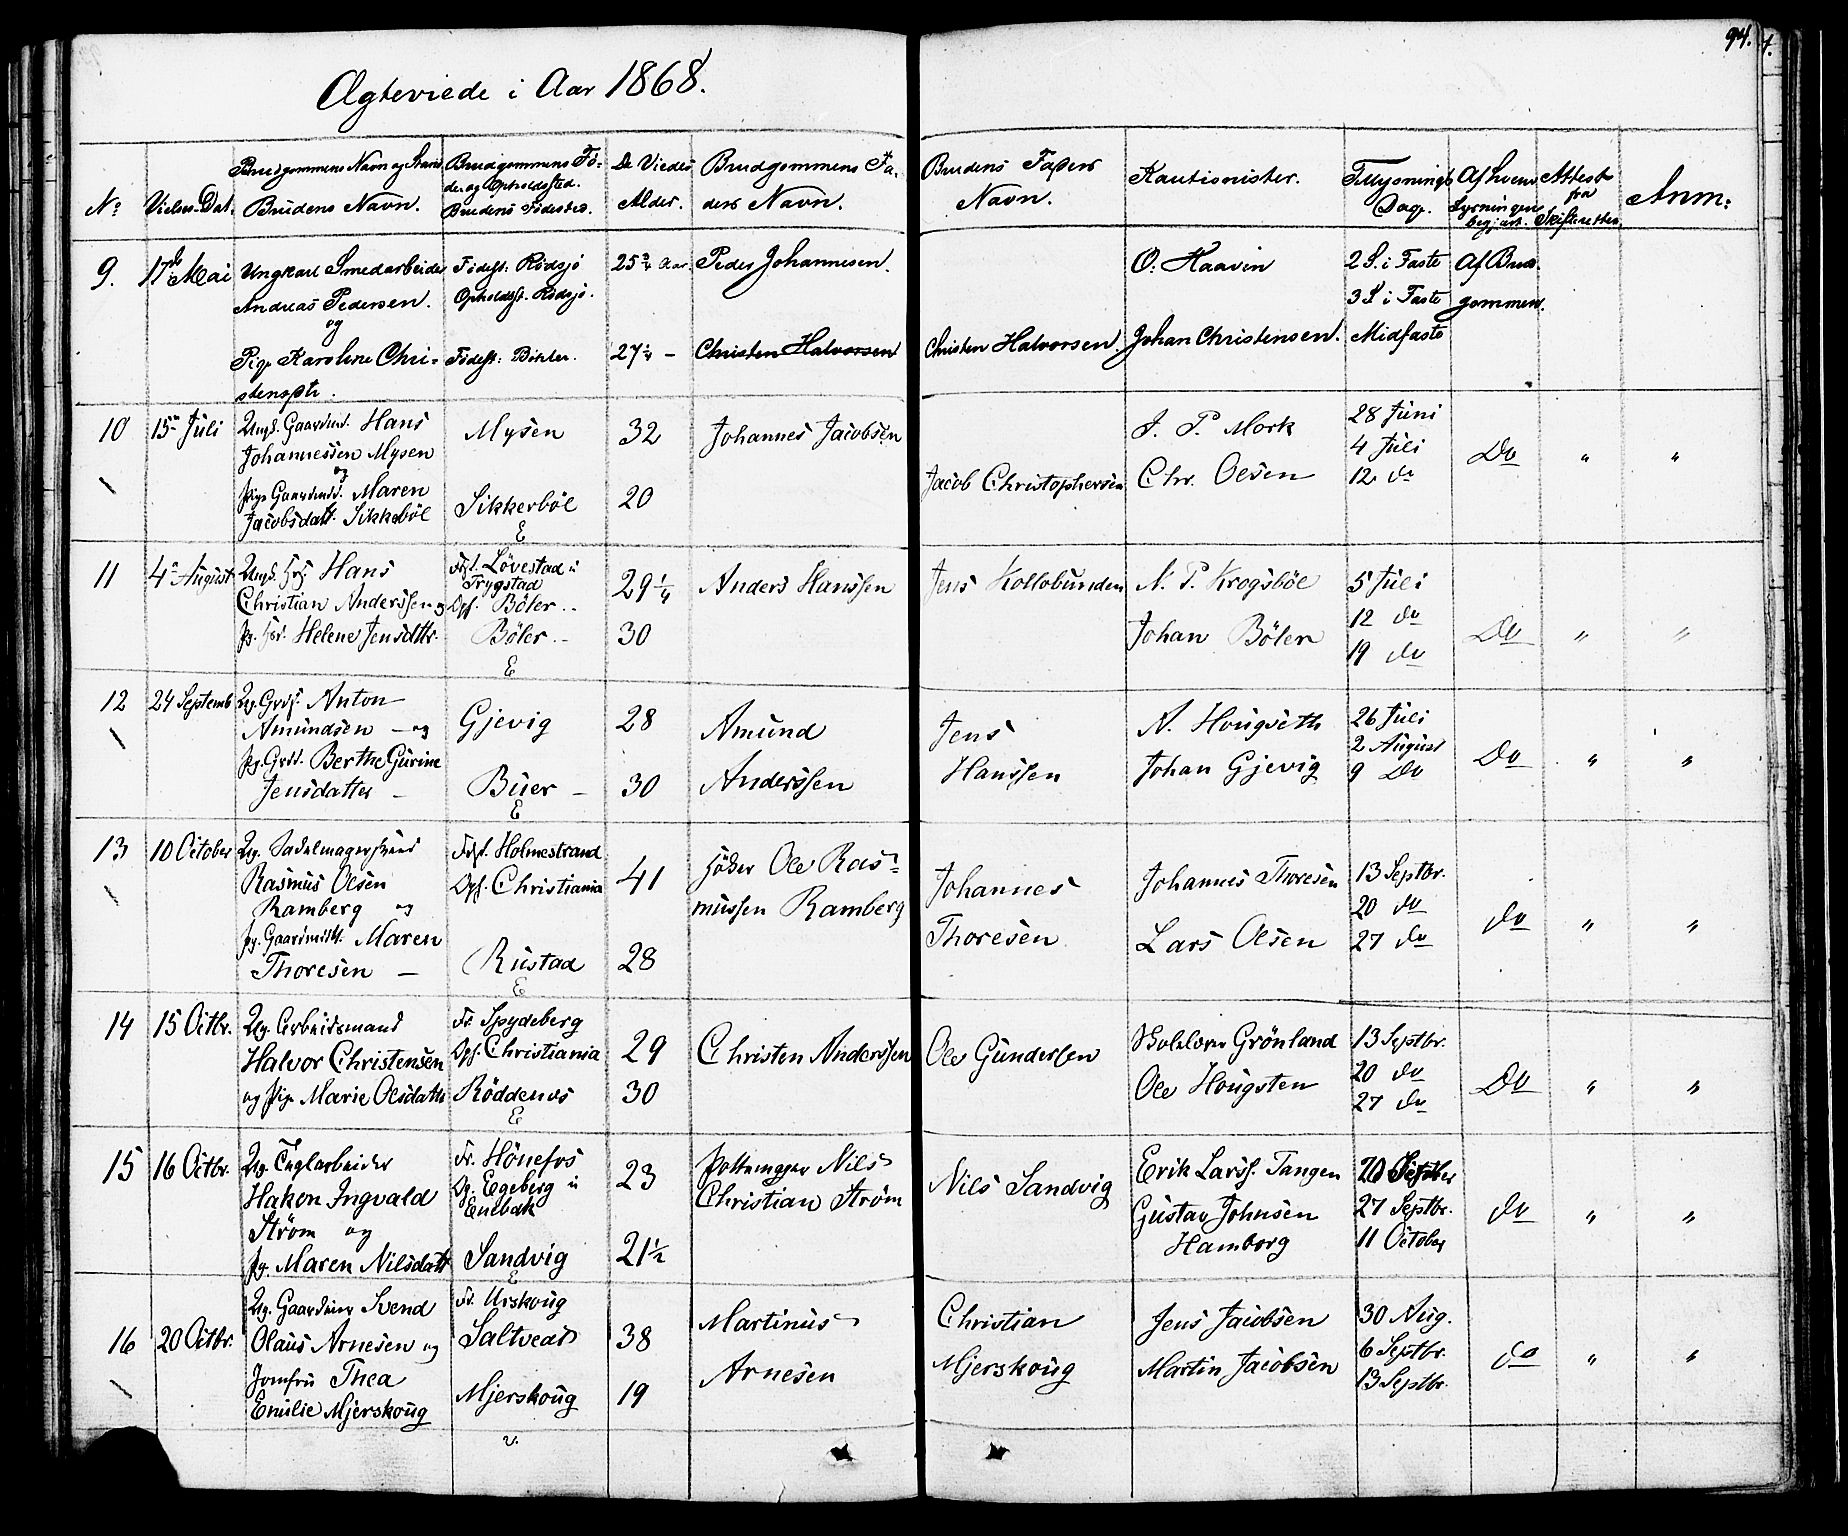 94.
Ægteviede i Aar 1868.
No
Vielses-Dat.
Brudgommens Navn og Stand
Brudens Navn.
Brudgommens Fö-
de og Opholdssted.
Brudens Födested.
De Viedes
Alder.
Brudgommens Fa-
ders Navn.
Brudens Faders
Navn.
Kautionister.
Tillysnings
Dage.
Af hvem
Lysningen
begjært.
Attest
fra
Skifteretten.
Anm:
9. 17de Mai
Ungkarl Smedarbeider
Andreas Pedersen.
og
Pige Karoline Chri-
stensdtr.
Födest: Rödsjö
Opholdsst. Rödsjö.
Födest: Bikter.
25 3/4 Aar.
27 1/4 –
Peder Johannesen.
Christen Halvorsen
Christen Halvorsen.
O: Haavin
Johan Christensen.
2 S. i Faste
3 S i Faste
Midfaste
Af Brud-
gommen.
10 15de Juli
Ungk. Gaardmd. Hans
Johannessen Mysen
og
Pige Gaardmd. Maren
Jacobsdatt. Sikkeböl
Mysen
Sikkerböl
E
32
20
Johannes Jacobsen
Jacob Christophersen
J. P. Mork
Chr. Olsen
28 Juni
4 Juli
12 do
Do " "
11 4de August
Ungk. Hans
Christian Anderssen og
Pg. Helene Jensdttr.
Fdst. Lövestad i
Trygstad
Opf. Böler
Böler
E
29 1/4
30
Anders Hanssen
Jens Kollobunden
N. P. Krogsböl
Johan Bölen
5 Juli
12 do
19 do
Do " "
12 24 Septemb
Ug. Grdf. Anton
Amundsen – og
Pg. Grdd. Berthe Gurine
Jensdatter –
Gjevig
Buer –
E
28
30
Amund
Anderssen
Jens
Hanssen
A. Hougseth
Johan Gjevig
26 Juli
2 August
9 Do
Do " "
13 10 October
Ug. Sadelmagersvend
Rasmus Olsen
Ramberg og
Pg. Gaardmdtt. Maren
Thoresen –
Fdst. Holmestrand
Opf. Christiania
Rustad
E
41
28
Höker Ole Ras-
mussen Ramberg
Johannes
Thoresen
Johannes Thoresen
Lars Olsen
13 Septbr.
20 do
27 do
do " "
14 15 Octbr.
Ug. Arbeidsmand
Halvor Christensen
og Pige Marie Olsdattr
Fr. Spydeberg
Opf. Christiania
Röddenes
E
29
30
Christen Anderssen
Ole Gundersen
Grönland
Ole Hougsten
13 Septbr.
20 do
27 do
Do " "
15 16 Octbr.
Ug. Teglarbeider
Haken Ingvald
Ström og
Pg. Maren Nilsdatt
Fr. Hönefos
Op. Egeberg i
Enebak
Sandvig
E
23
21 1/2
Pottemager Nils
Christian Ström
Nils Sandvig
Erik Larss. Tangen
Gustav Johnsen
Hamborg
20 Septber
27 Septbr.
11 October
do " "
16 20 Octbr.
Ug. Gaardmand Svend
Olaus Arnesen og
Jomfru Thea
Emilie Mjerskoug
Fr. Urskoug
Saltvedt
Mjerskoug
v.
38
19
Martinus
Arnesen
Christian
Mjerskoug
Jens Jacobsen
Martin Jacobsen
30 Aug.
6 Septbr.
13 Septbr.
do " "